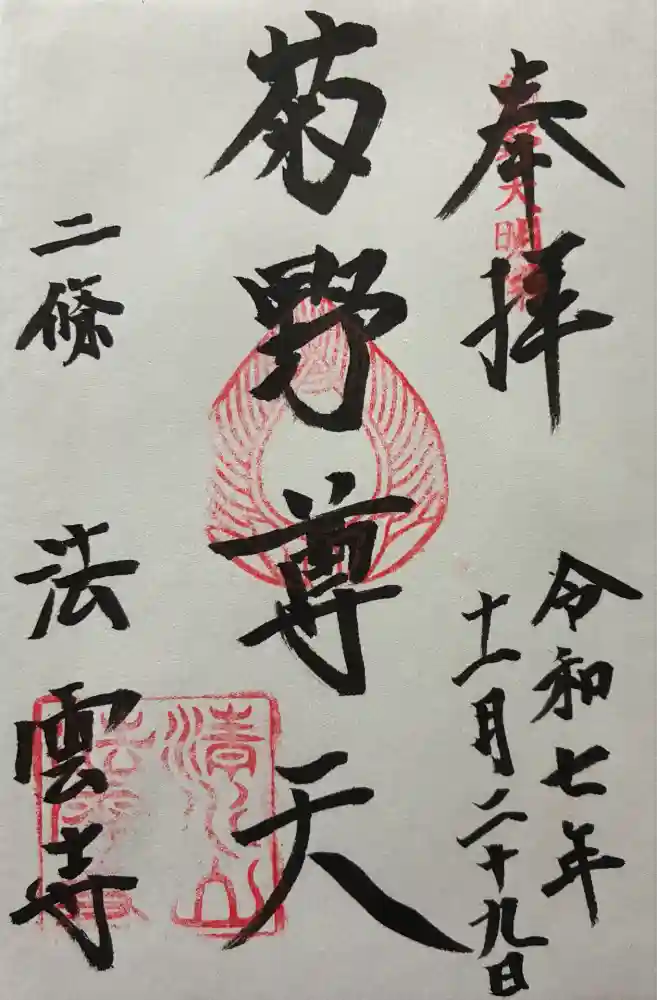 奉拝
令和七年
十一月二十九日
菊野尊天
二條 法雲寺
清水山